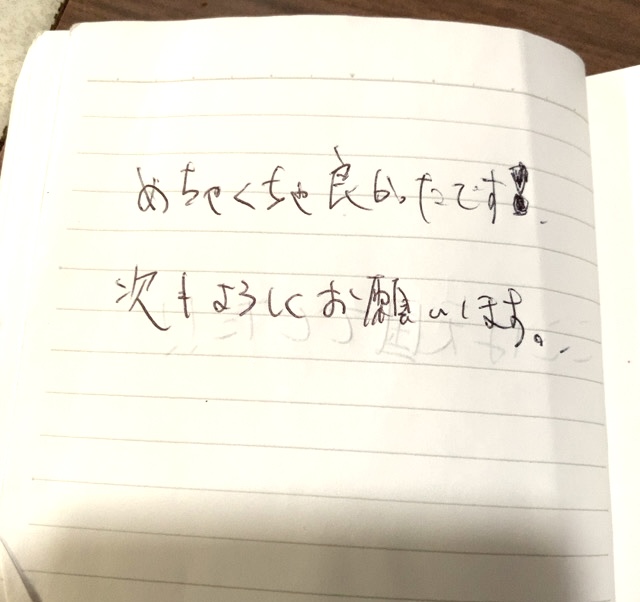 めちゃくちゃ良かったです!
次もよろしくお願いします。